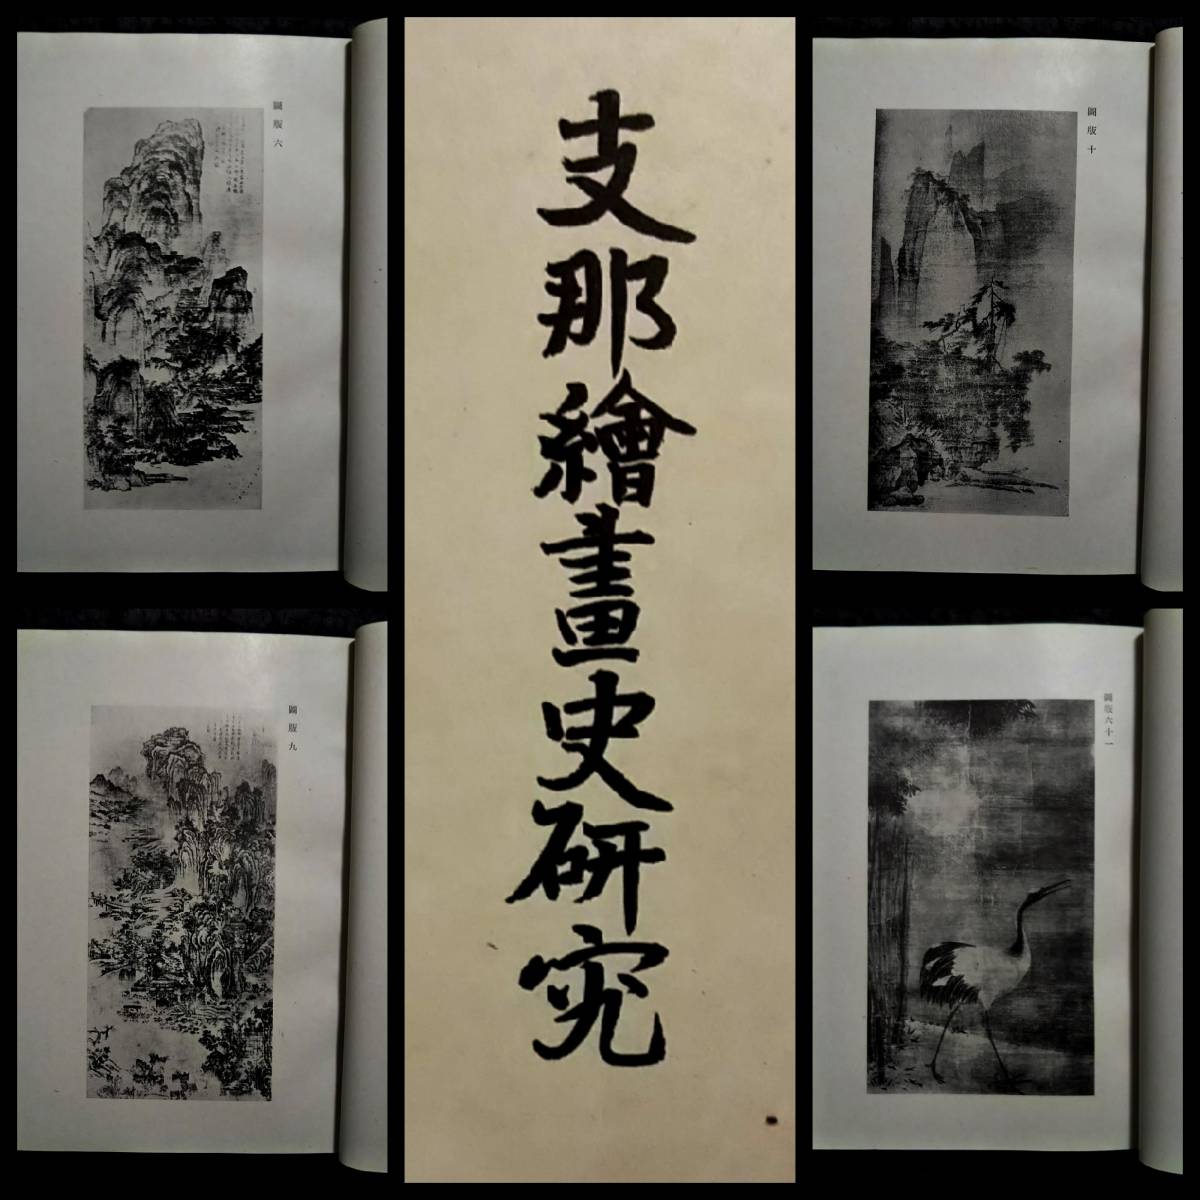 圖版六
圖版九
支那繪畫史研究
圖版十
圖版六十一